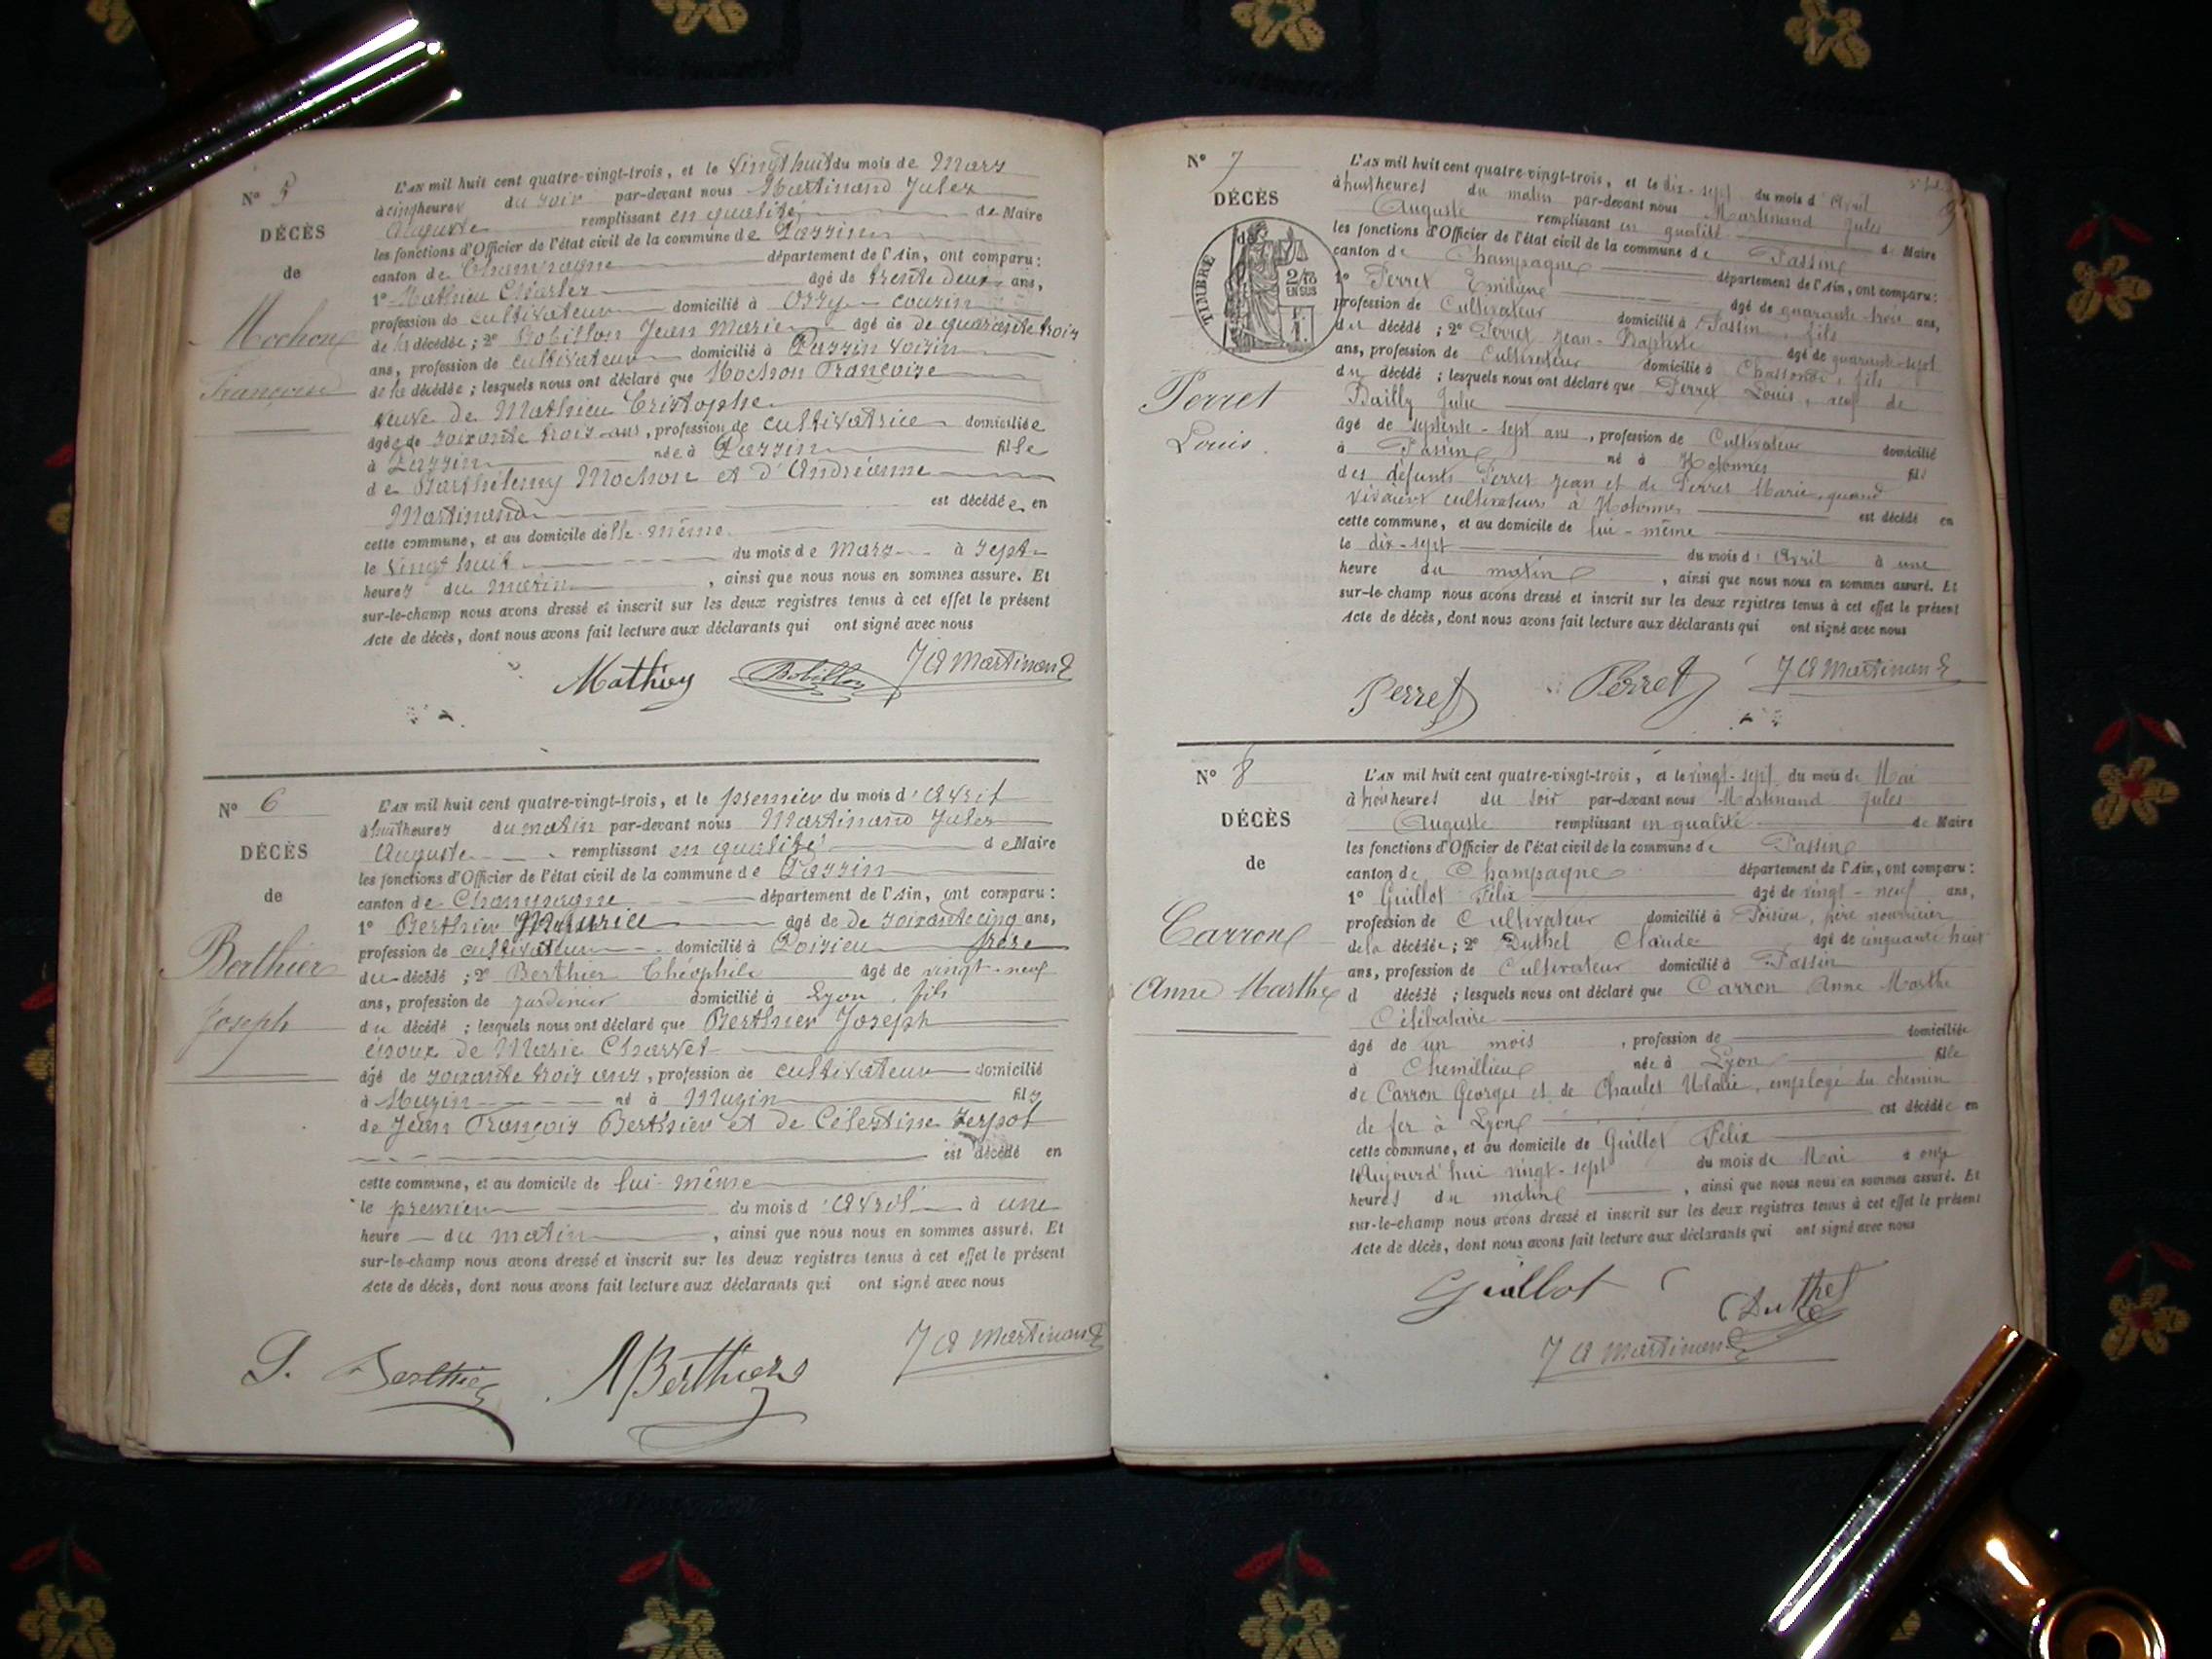 N° 5
DÉCÈS
de
Mochon
Françoise
L'AN mil huit cent quatre-vingt-trois, et le vingt huit du mois de Mars
à cinq heures du soir par-devant nous Martinand Jules
Auguste remplissant en qualité de Maire
les fonctions d'Officier de l'état civil de la commune de Passin
canton de Champagne département de l'Ain, ont comparu :
1° Mathieu Charles âgé de trente deux ans,
profession de cultivateur domicilié à Ossy cousin
de la décédée ; 2° Bobillon Jean Marie âgé de de quarante trois
ans, profession de cultivateur domicilié à Passin voisin
de la décédée ; lesquels nous ont déclaré que Mochon Françoise
veuve de Mathieu Cristophe
âgée de soixante trois ans, profession de cultivatrice domiciliée
à Passin née à Passin fille
de Barthélemy Mochon et d'Andréanne
Martinand est décédée, en
cette commune, et au domicile de lle-même
le vingt huit du mois de Mars à sept
heures du matin, ainsi que nous nous en sommes assuré. Et
sur-le-champ nous avons dressé et inscrit sur les deux registres tenus à cet effet le présent
Acte de décès, dont nous avons fait lecture aux déclarants qui ont signé avec nous
Mathieu Bobillon J A Martinand
N° 6
DÉCÈS
de
Berthier
Joseph
L'AN mil huit cent quatre-vingt-trois, et le premier du mois d'Avril
à huit heures du matin par-devant nous Martinand Jules
Auguste remplissant en qualité de Maire
les fonctions d'Officier de l'état civil de la commune de Passin
canton de Champagne département de l'Ain, ont comparu :
1° Berthier Maurice âgé de de soixante cinq ans,
profession de cultivateur domicilié à Poisieu frère
du décédé ; 2° Berthier Théophile âgé de vingt-neuf
ans, profession de jardinier domicilié à Lyon, fils
du décédé ; lesquels nous ont déclaré que Berthier Joseph
époux de Marie Charvet
âgé de soixante trois ans, profession de cultivateur domicilié
à Muzin né à Muzin fils
de Jean François Berthier et de Célestine
est décédé en
cette commune, et au domicile de lui-même
le premier du mois d'Avril à une
heure du matin, ainsi que nous nous en sommes assuré. Et
sur-le-champ nous avons dressé et inscrit sur les deux registres tenus à cet effet le présent
Acte de décès, dont nous avons fait lecture aux déclarants qui ont signé avec nous
Berthier Berthier J A Martinand
N° 7
DÉCÈS
de
TIMBRE
2/10
EN SUS
Perret
Louis.
L'AN mil huit cent quatre-vingt-trois, et le dix-sept du mois d'Avril
à huit heures du matin par-devant nous Martinand Jules
Auguste remplissant en qualité de Maire
les fonctions d'Officier de l'état civil de la commune de Passin
canton de Champagne département de l'Ain, ont comparu :
1° Perret Emilien âgé de quarante-trois ans,
profession de Cultivateur domicilié à Passin, fils
du décédé ; 2° Perret Jean-Baptiste âgé de quarante-sept
ans, profession de Cultivateur domicilié à fils
du décédé ; lesquels nous ont déclaré que Perret Louis, veuf de
Bailly Julie
âgé de septente-sept ans, profession de Cultivateur domicilié
à Passin né à Hotonnes fils
des défunts Perret Jean et de Perret Marie, quand
vivaient cultivateurs à Hotonnes est décédé en
cette commune, et au domicile de lui-même
le dix-sept du mois d'Avril à une
heure du matin, ainsi que nous nous en sommes assuré. Et
sur-le-champ nous avons dressé et inscrit sur les deux registres tenus à cet effet le présent
Acte de décès, dont nous avons fait lecture aux déclarants qui ont signé avec nous
Perret Perret J A Martinand
N° 8
DÉCÈS
de
Carron
Anne Marthe
L'AN mil huit cent quatre-vingt-trois, et le vingt-sept du mois de Mai
à trois heures du soir par-devant nous Martinand Jules
Auguste remplissant en qualité de Maire
les fonctions d'Officier de l'état civil de la commune de Passin
canton de Champagne département de l'Ain, ont comparu :
1° Guillot Félix âgé de vingt-neuf ans,
profession de Cultivateur domicilié à Poisieu, père nourricier
de la décédée ; 2° Duthel Claude âgé de cinquante huit
ans, profession de Cultivateur domicilié à Passin
d décédé ; lesquels nous ont déclaré que Carron Anne Marthe
Célibataire
âgé de un mois, profession de domiciliée
à Chemillieu née à Lyon fille
de Carron Georges et de Chaulet Ulalie, employé du chemin
de fer à Lyon est décédée en
cette commune, et au domicile de Guillot Félix
le Aujourd'hui vingt-sept du mois de Mai à onze
heures du matin, ainsi que nous nous en sommes assuré. Et
sur-le-champ nous avons dressé et inscrit sur les deux registres tenus à cet effet le présent
Acte de décès, dont nous avons fait lecture aux déclarants qui ont signé avec nous
Guillot Duthel
J A Martinand